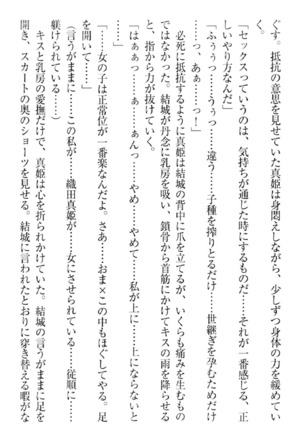 ぐす。抵抗の意思を見せていた真姫は身悶えしながら、少しずつ身体の力を緩めてい
く。
「セックスっていうのは、気持ちが通じた時にするものだ……それが一番感じる、正
しいやり方なんだ」
「ふぅぅっ……うぅっ……違う……子種を搾りとるだけ……世継ぎを孕むためだけ
っ、あぁ……っ！」
　必死に抵抗するように真姫は結城の背中に爪を立てるが、いくらも痛みを生むもの
ではなかった。結城が丹念に乳房を吸い、鎖骨から首筋にかけてキスの雨を降らせる
と、指から力が抜けていく。
「はぁぁっ……ぁっ……ぁんっ……やめ……やめて……私が上に……上にならない
と……だめ……」
「……女の子は正常位が一番楽なんだよ。さあ……おま×この中もほぐしてやる。足
を開いて……」
（言うがままに……この私が……織田真姫が……女にさせられている……従順に……
躾けられている……）
　キスと乳房の愛撫だけで、真姫は心を折られかけていた。結城の言うがままに足を
開き、スカートの奥のショーツを見せる。結城に言われたとおりに穿き替える暇がな